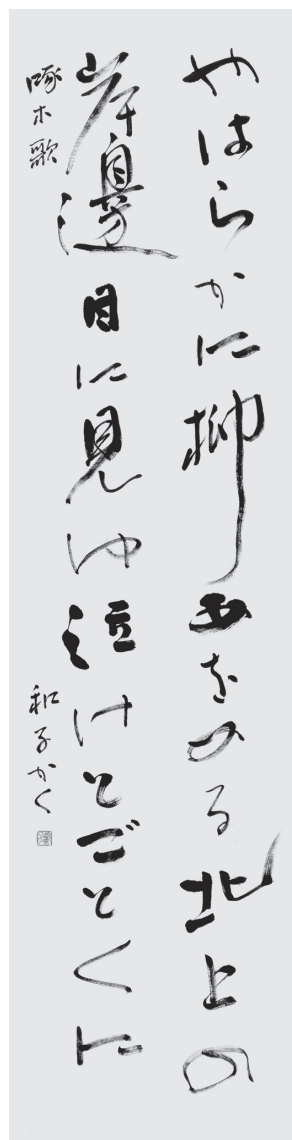 やはらかに柳あをめる北上の
岸邊目に見ゆ泣けとごとくに
啄木歌
和子かく